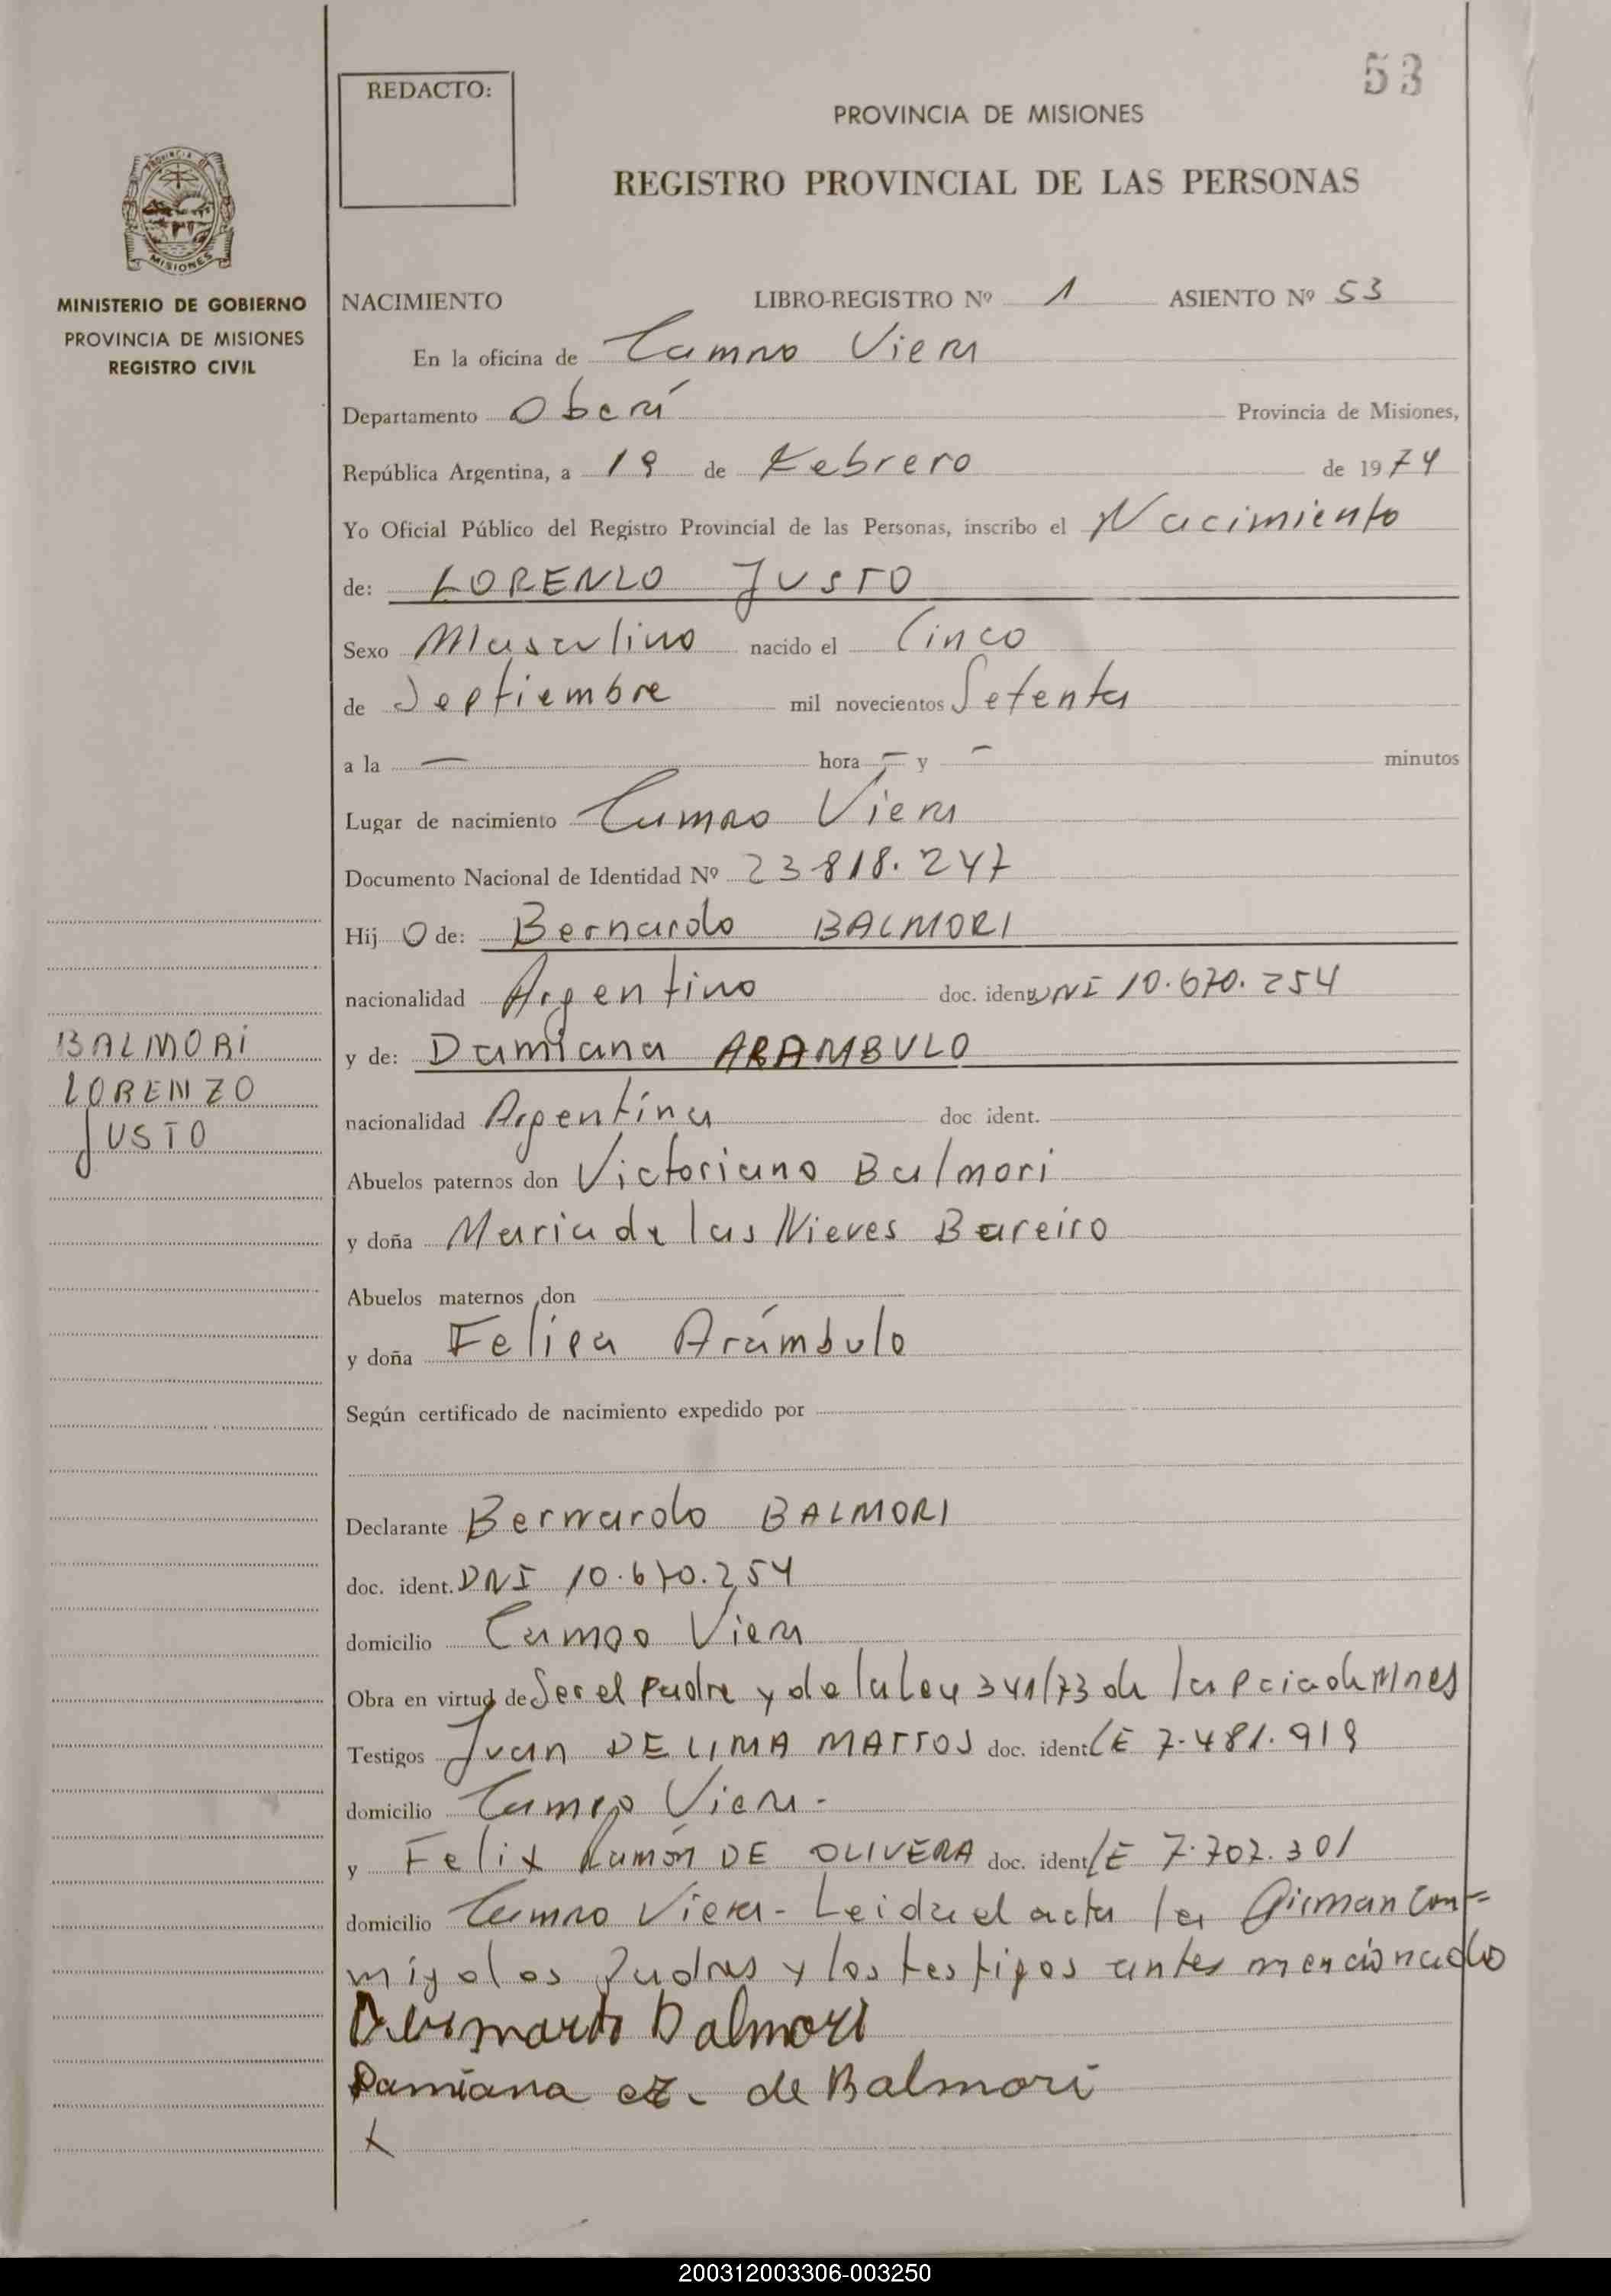 53
REDACTO:
PROVINCIA DE MISIONES
REGISTRO PROVINCIAL DE LAS PERSONAS
PROVINCIA DE
MISIONES
MINISTERIO DE GOBIERNO
PROVINCIA DE MISIONES
REGISTRO CIVIL
NACIMIENTO LIBRO-REGISTRO Nº 1 ASIENTO Nº 53
En la oficina de Campo Viera
Departamento Oberá Provincia de Misiones,
República Argentina, a 19 de Febrero de 1974
Yo Oficial Público del Registro Provincial de las Personas, inscribo el Nacimiento
de: LORENZO JUSTO
Sexo Masculino nacido el Cinco
de Septiembre mil novecientos Setenta
a la — hora — y — minutos
Lugar de nacimiento Campo Viera
Documento Nacional de Identidad Nº 23.818.247
Hijo de: Bernardo BALMORI
nacionalidad Argentino doc. ident. DNI 10.670.254
BALMORI
LORENZO
JUSTO
y de: Damiana ARAMBULO
nacionalidad Argentina doc ident.
Abuelos paternos don Victoriano Balmori
y doña Maria de las Nieves Bareiro
Abuelos maternos don
y doña Felipa Arámbulo
Según certificado de nacimiento expedido por
Declarante Bernardo BALMORI
doc. ident. DNI 10.670.254
domicilio Campo Viera
Obra en virtud de Ser el padre y de la Ley 341/73 de la Pcia de Mnes
Testigos Juan DE LIMA MATTOS doc. ident LE 7.481.919
domicilio Campo Viera -
y Felix Ramón DE OLIVERA doc. ident LE 7.702.301
domicilio Campo Viera - Leida el acta la firman con=
migo los Padres y los testigos antes mencionado
Bernardo Balmori
Damiana de Balmori
X
200312003306-003250